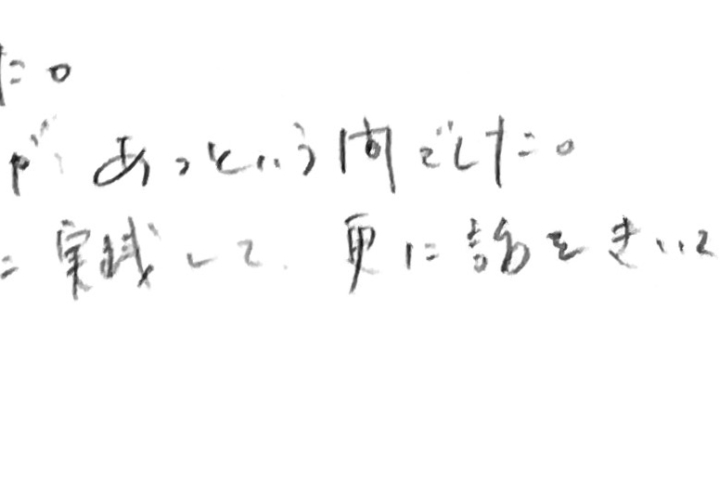 た。
が あっという間でした。
に実践して 更に話をきいて